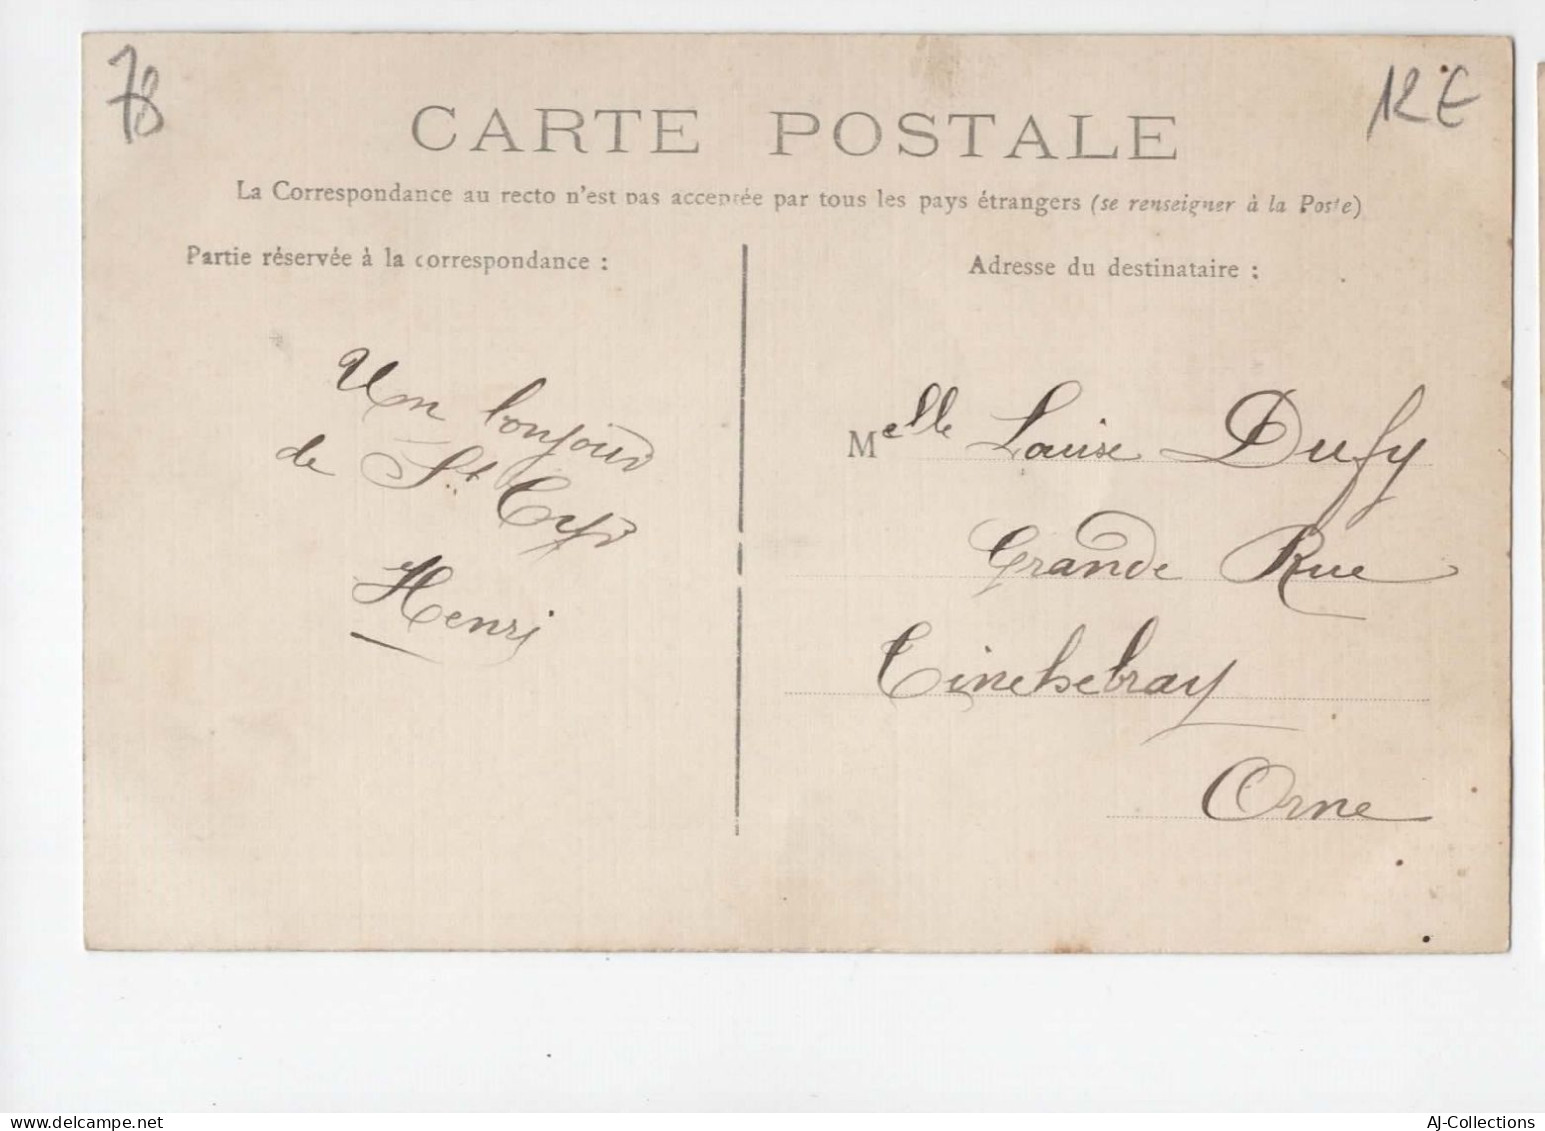 78
12 €
CARTE POSTALE
La Correspondance au recto n'est pas acceptée par tous les pays étrangers (se renseigner à la Poste)
Partie réservée à la correspondance :
Un bonjour
de St Cyr
Henri
Adresse du destinataire :
Melle Louise Dufy
Grande Rue
Tinchebray
Orne
AJ-Collections